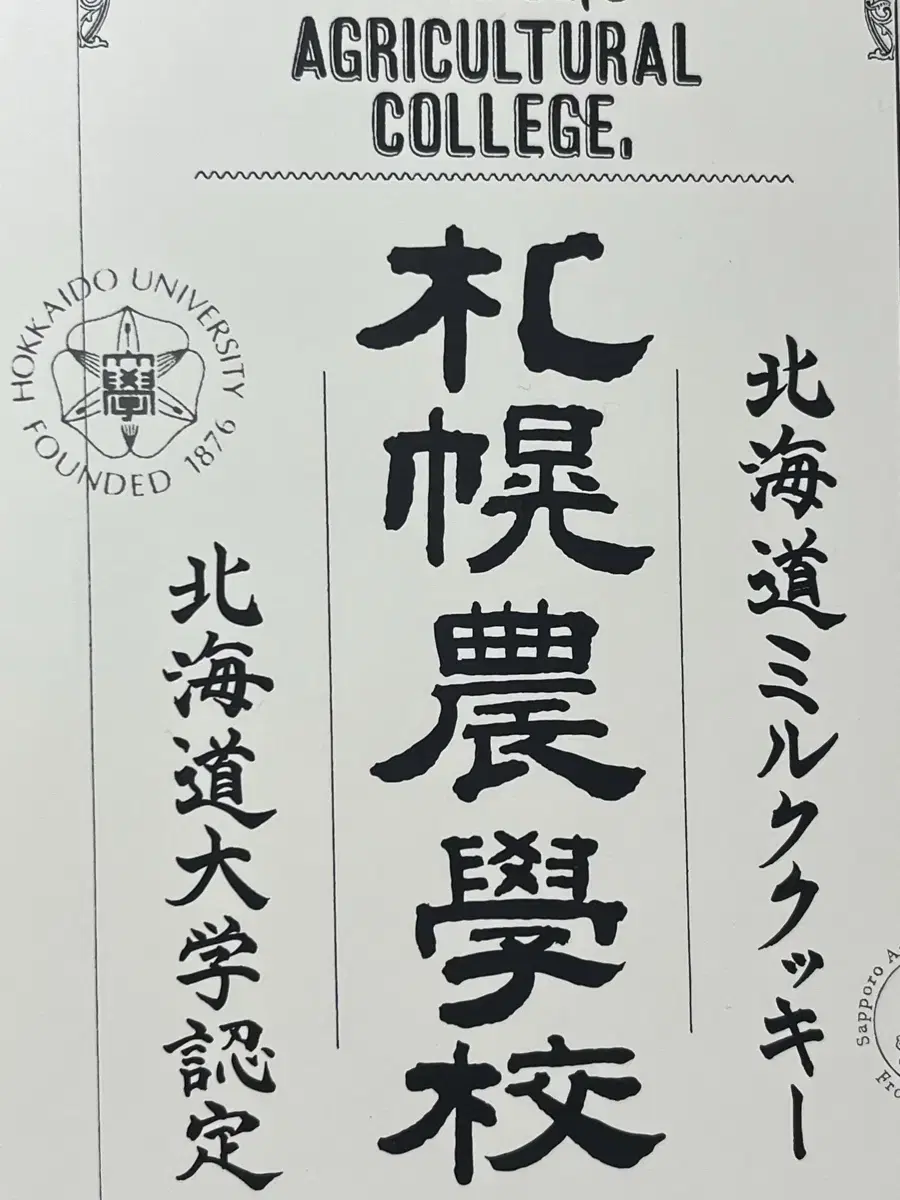 AGRICULTURAL
COLLEGE.
北海道ミルククッキー
札幌農學校
HOKKAIDO UNIVERSITY
學
FOUNDED 1876
北海道大学認定
Sapporo